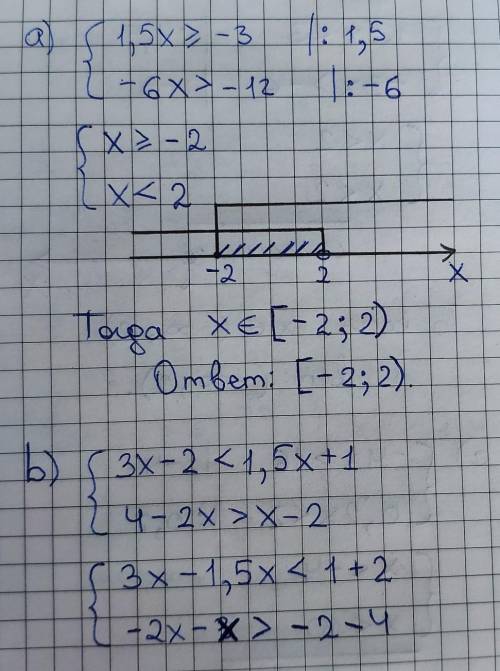 a) { 1,5x ≥ -3 |: 1,5
-6x > -12 |: -6
{ x ≥ -2
x < 2
-2 2 x
Тогда x ∈ [-2; 2)
Ответ: [-2; 2).
b) { 3x - 2 < 1,5x + 1
4 - 2x > x - 2
{ 3x - 1,5x < 1 + 2
-2x - x > -2 - 4